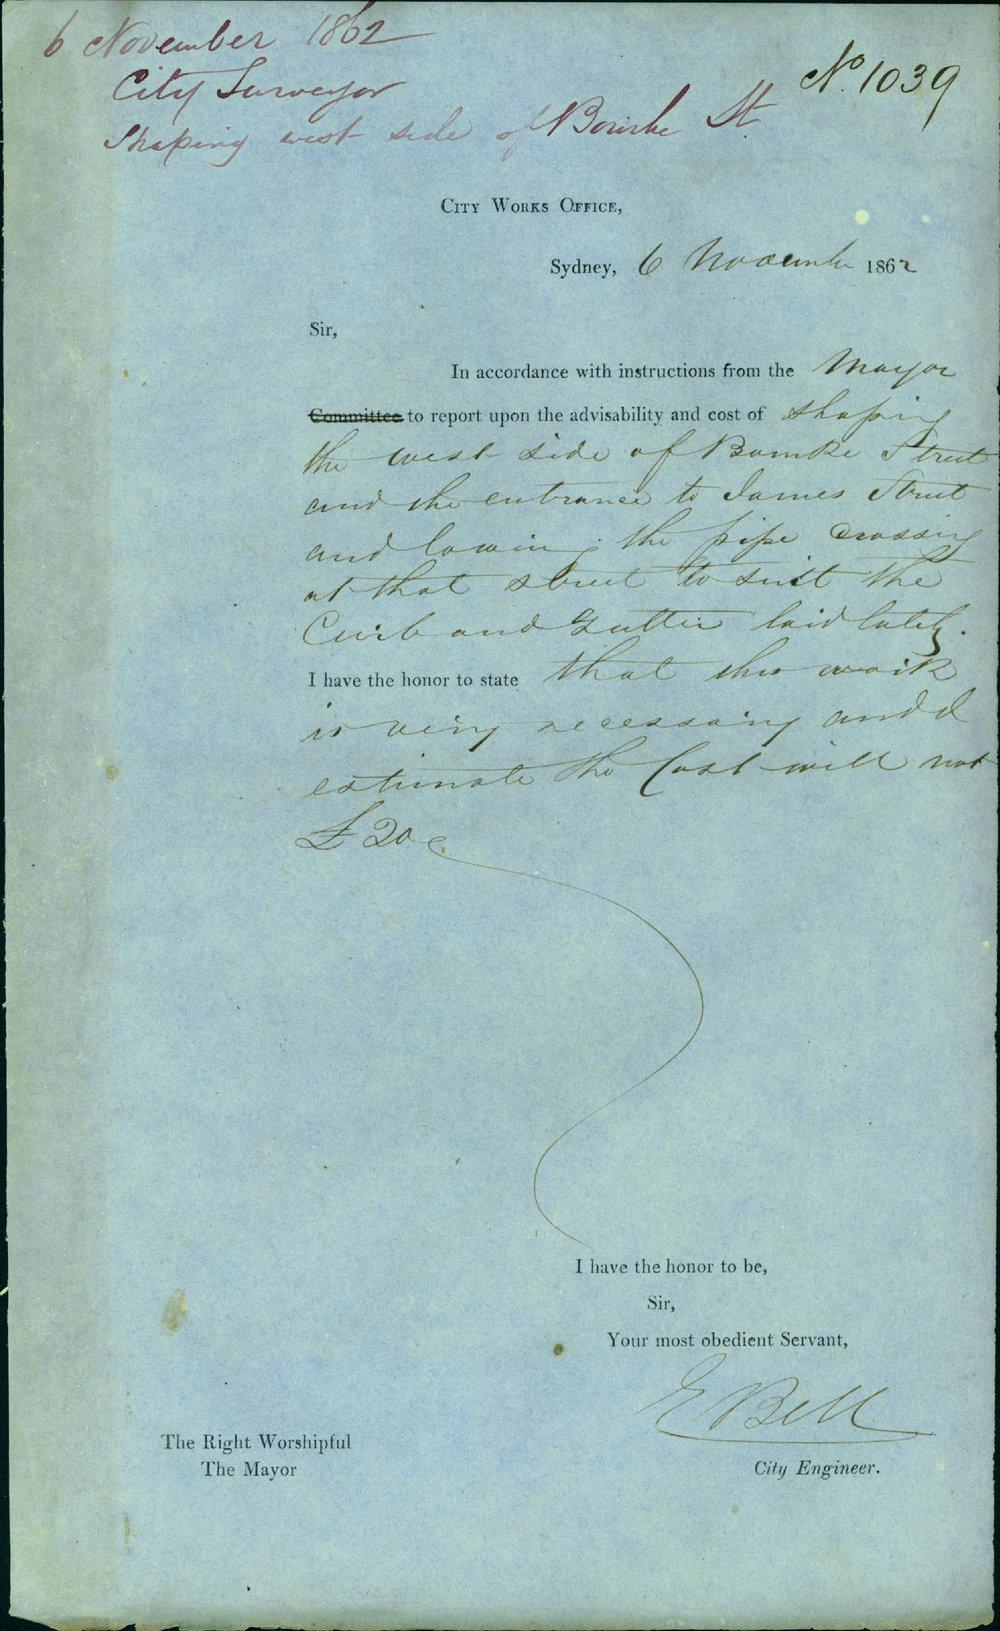 6 November 1862
City Surveyor
Shaping west side of Bourke St
No. 1039
City Works Office,
Sydney, 6 November 1862
Sir,
In accordance with instructions from the Mayor
Committee to report upon the advisability and cost of shaping
the west side of Bourke Street
and the entrance to James Street
and lowering the pipe crossing
at that street to suit the
Curb and Gutter laid lately.
I have the honor to state that this work
is very necessary and I
estimate the Cost will not
£20
I have the honor to be,
Sir,
Your most obedient Servant,
E Bell
City Engineer.
The Right Worshipful
The Mayor